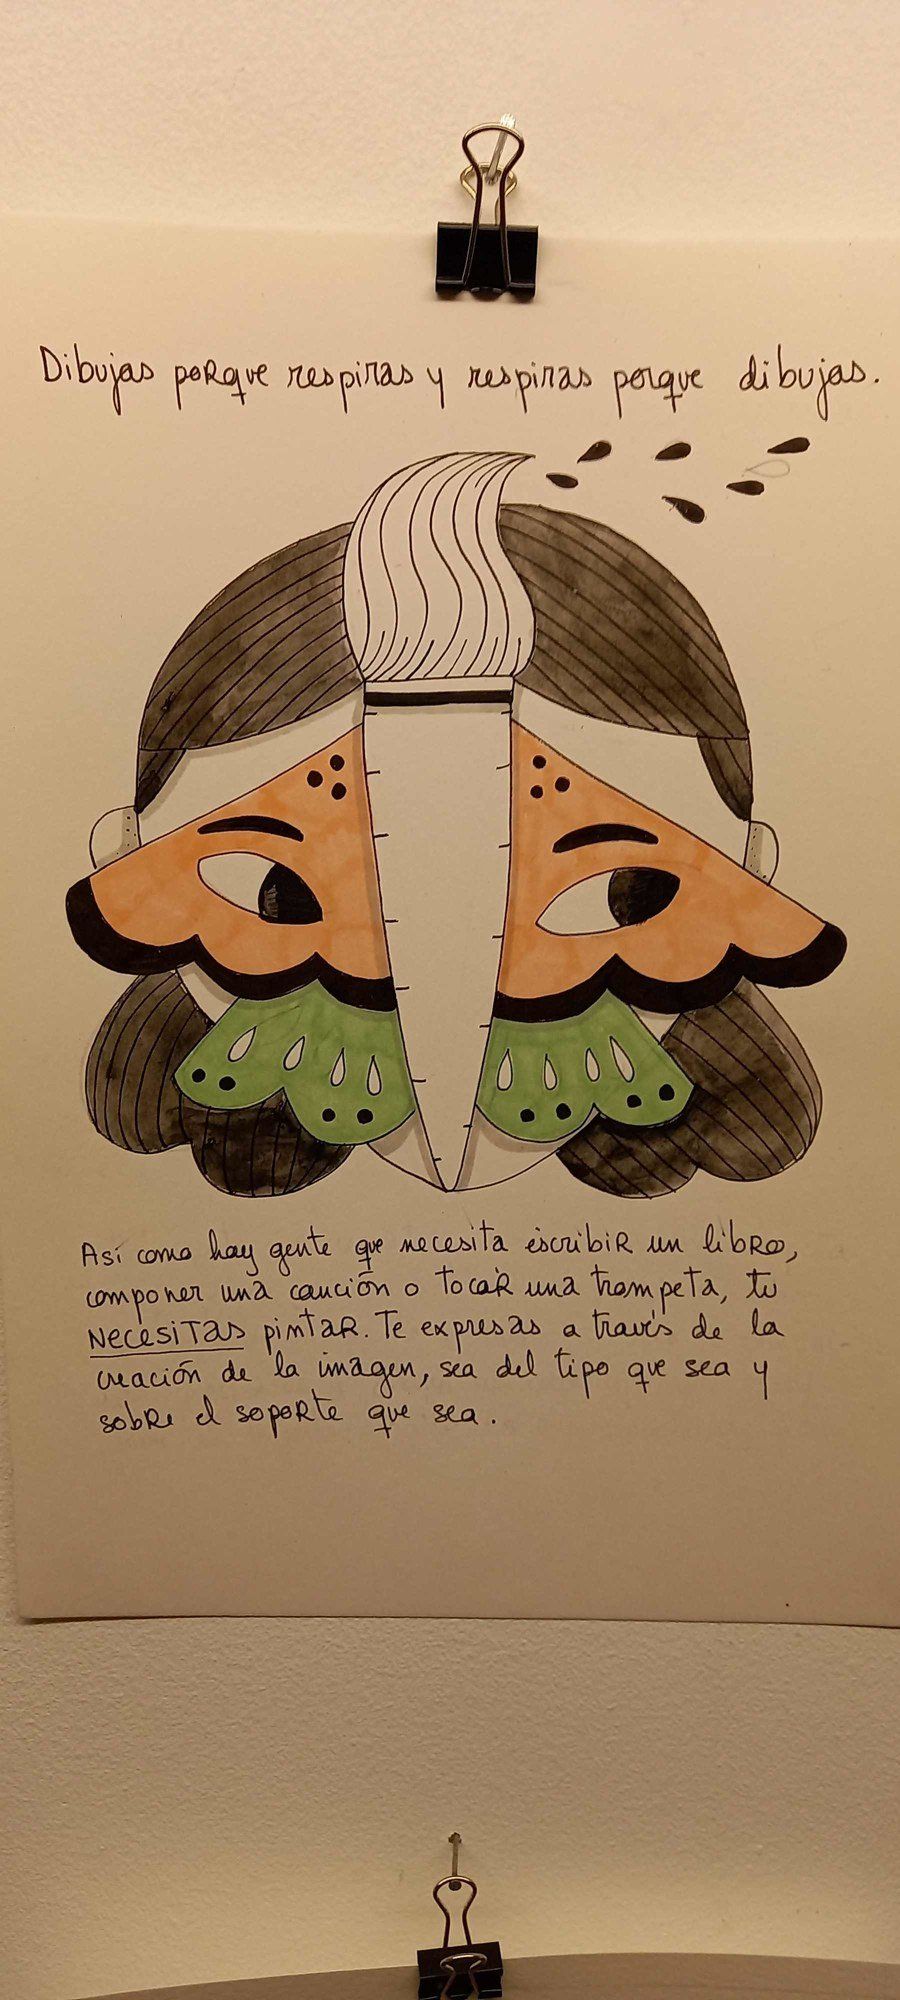 Dibujas porque respiras y respiras porque dibujas.
Así como hay gente que necesita escribir un libro,
componer una canción o tocar una trompeta, tu
NECESITAS pintar. Te expresas a través de la
creación de la imagen, sea del tipo que sea y
sobre el soporte que sea.